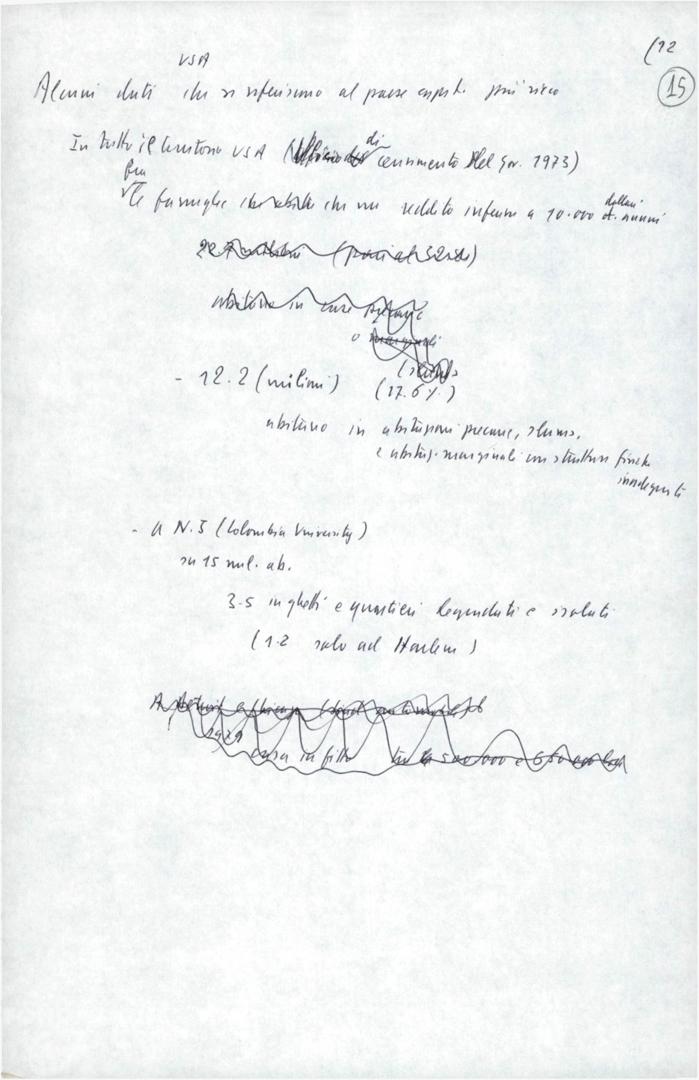 (12
15
USA
Alcuni dati che si riferiscono al paese capit. più ricco
In tutto il territorio USA (di censimento del gov. 1973)
fra
le famiglie che un reddito inferiore a 10.000 dollari annui
abitano in case precarie
o marginali
(slums)
- 12.2 (milioni) (17.6%)
abitano in abitazioni precarie, slums,
e abitaz. marginali con strutture fisiche
inadeguate
- a N.J (Colombia University)
su 15 mil. ab.
3.5 in ghetti e quartieri degradati e isolati
(1.2 solo ad Harlem)
casa in fitto 500.000 e 650